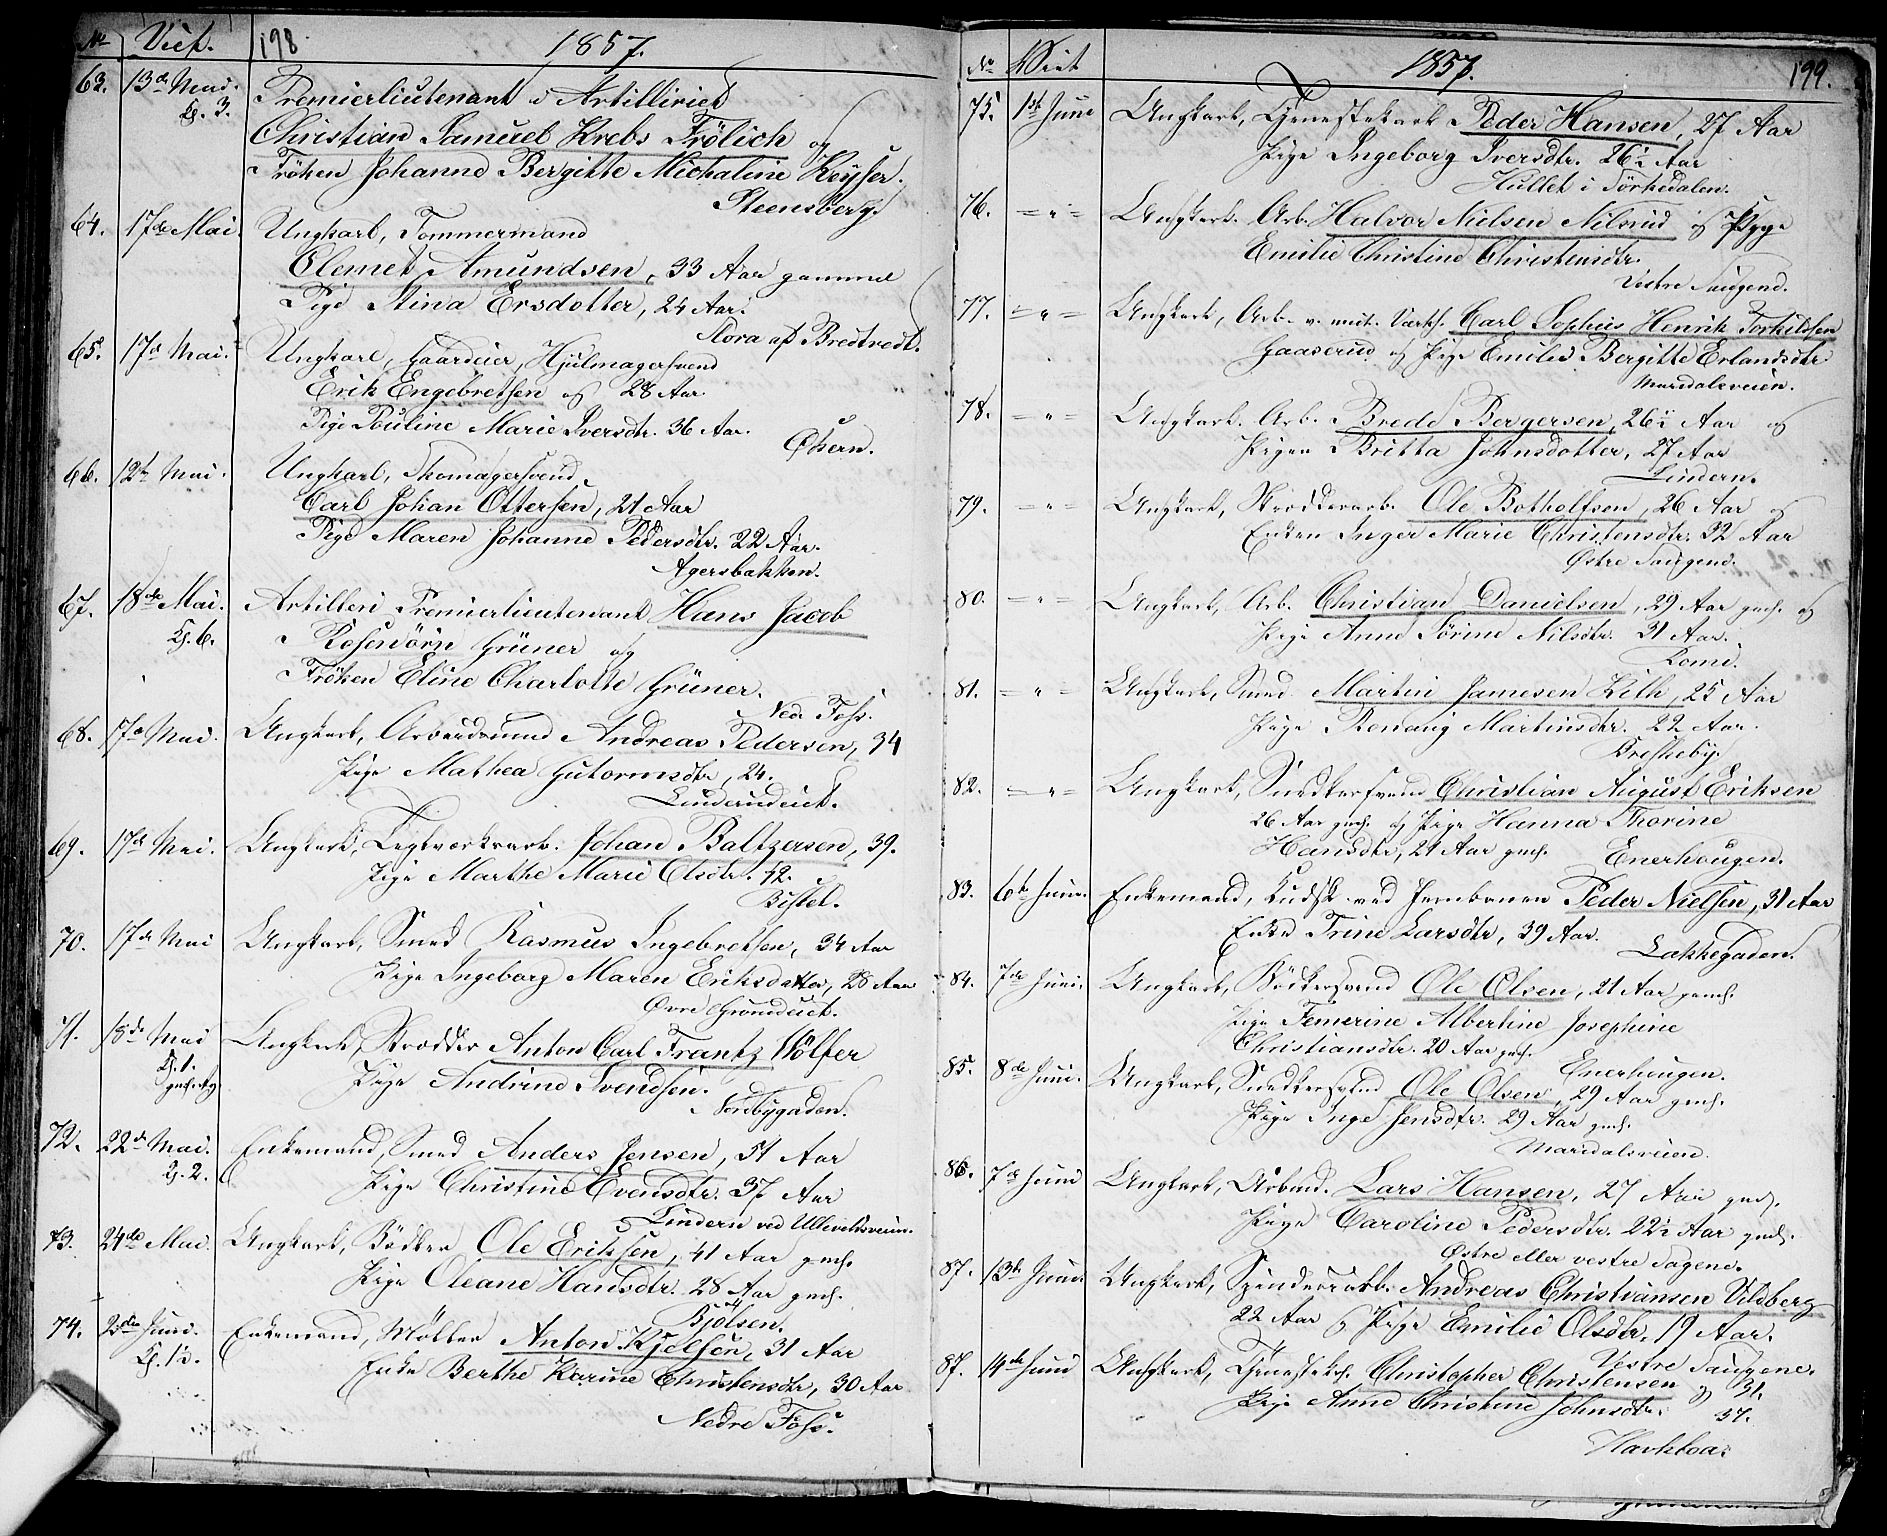 No Viet. 198 1857.
63. 13de Mai. Premierlieutenant i Artilleriet
Kl. 3. Christian Samuel Krebs Frölich og
Fröken Johanne Bergitte Michaline Keyser.
Steensberg.
64. 17de Mai. Ungkarl, Tømmermand
Clemet Amundsen, 33 Aar gammel
Pige Stina Ersdotter, 24 Aar.
Flora af Bredtvedt.
65. 17de Mai. Ungkarl, Gaardeier, Hjulmagersvend
Erik Engebretsen og 28 Aar.
Pige Pouline Marie Iversdtr. 36 Aar.
Økern.
66. 12te Mai. Ungkarl, Skomagersvend
Carl Johan Ottersen, 21 Aar
Pige Maren Johanne Pedersdtr. 22 Aar.
Agersbakken.
67. 18de Mai. Artilleri Premierlieutenant Hans Jacob
Kl. 6. Rosenörn Grüner og
Fröken Eline Charlotte Grüner.
Ned. Foss.
68. 17de Mai. Ungkarl, Arbeidsmand Andreas Pedersen, 34
Pige Mathea Gutormsdtr, 24.
Linderudeiet.
69. 17de Mai. Ungkarl, Teglværksarb. Johan Baltzersen, 39.
Pige Marthe Marie Olsdtr. 42.
Bislet.
70. 17de Mai Ungkarl, Smed Rasmus Ingebretsen, 34 Aar
Pige Ingeborg Maren Eriksdatter, 28 Aar
Øvre Grændeiet.
71. 18de Mai Ungkarl, Skrædder Anton Carl Frantz Wölfer
Kl. 1. Pige Andrine Svendsen.
Nordbygaden.
72. 22de Mai. Enkemand, Smed Anders Jensen, 51 Aar
Kl. 2. Pige Christine Evensdtr. 37 Aar
Lindern ved Ullevoldsveien.
73. 24de Mai. Ungkarl, Bödker Ole Eriksen, 41 Aar gml.
Pige Oleane Hansdtr. 28 Aar gml.
Bjölsen.
74. 2den Juni. Enkemand, Möller Anton Kjelsen, 31 Aar
Enke Berthe Karine Christensdtr, 30 Aar
Nedre Foss.
No Viet 1857. 199.
75. 1ste Juni Ungkarl, Tjenestekarl Peder Hansen, 27 Aar
Pige Ingeborg Iversdtr. 26½ Aar
Hullet i Sörkedalen.
76. = " = Ungkarl. Arb. Halvor Nielsen Nilsrud og Pige
Emilie Christine Christensdtr.
Vestre Saugend.
77. = " = Ungkarl, Arb. v. mek. Værks. Carl Sophus Henrik Torkildsen
Gaaserud og Pige Emilie Bergitte Erlandsdtr
Maridalsveien.
78. = " = Ungkarl. Arb. Brede Bergersen, 26½ Aar og
Pigen Britta Johnsdotter, 27 Aar
Lindern.
79. = " = Ungkarl, Skrædderarb. Ole Botholfsen, 26 Aar og
Enken Inger Marie Christensdtr. 32 Aar
Østre Saugend.
80. = " = Ungkarl, Arb. Christian Danielsen, 29 Aar gml. og
Pige Anne Sörine Nilsdtr. 31 Aar.
Romi.
81. = " = Ungkarl, Smed Martin Jamesen Lilh, 25 Aar
Pige Renaug Martinsdtr. 22 Aar.
Briskeby.
82. = " = Ungkarl, Snedkersvend Christian August Eriksen
26 Aar gml. og Pige Hanna Thorine
Hansdtr, 21 Aar gml. Enerhougen.
83. 6te Juni. Enkemand, Kudsk ved Jernbanen Peder Nielsen, 31 Aar
Enke Trine Larsdtr, 39 Aar.
Lakkegaden.
84. 7de Juni. Ungkarl, Bödkersvend Ole Olsen, 21 Aar gml.
Pige Femerine Albertine Josephine
Christiansdtr. 20 Aar gml.
Enerhougen.
85. 8de Juni. Ungkarl, Snedkersvend Ole Olsen, 29 Aar gml.
Pige Inge Jensdtr. 29 Aar gml.
Maridalsveien.
86. 7de Juni Ungkarl, Arbmd. Lars Hansen, 27 Aar gml.
Pige Caroline Pedersdtr. 22½ Aar gml.
Østre eller vestre Sagene.
87. 13de Juni Ungkarl, Spinderiarb. Andreas Christiansen Vildberg
22 Aar og Pige Emilie Olsdtr, 19 Aar.
Vestre Saugene.
87. 14de Juni Ungkarl, Tjenestek. Christopher Christensen og 31.
Pige Anne Christine Johnsdtr. 37.
Havkloa.